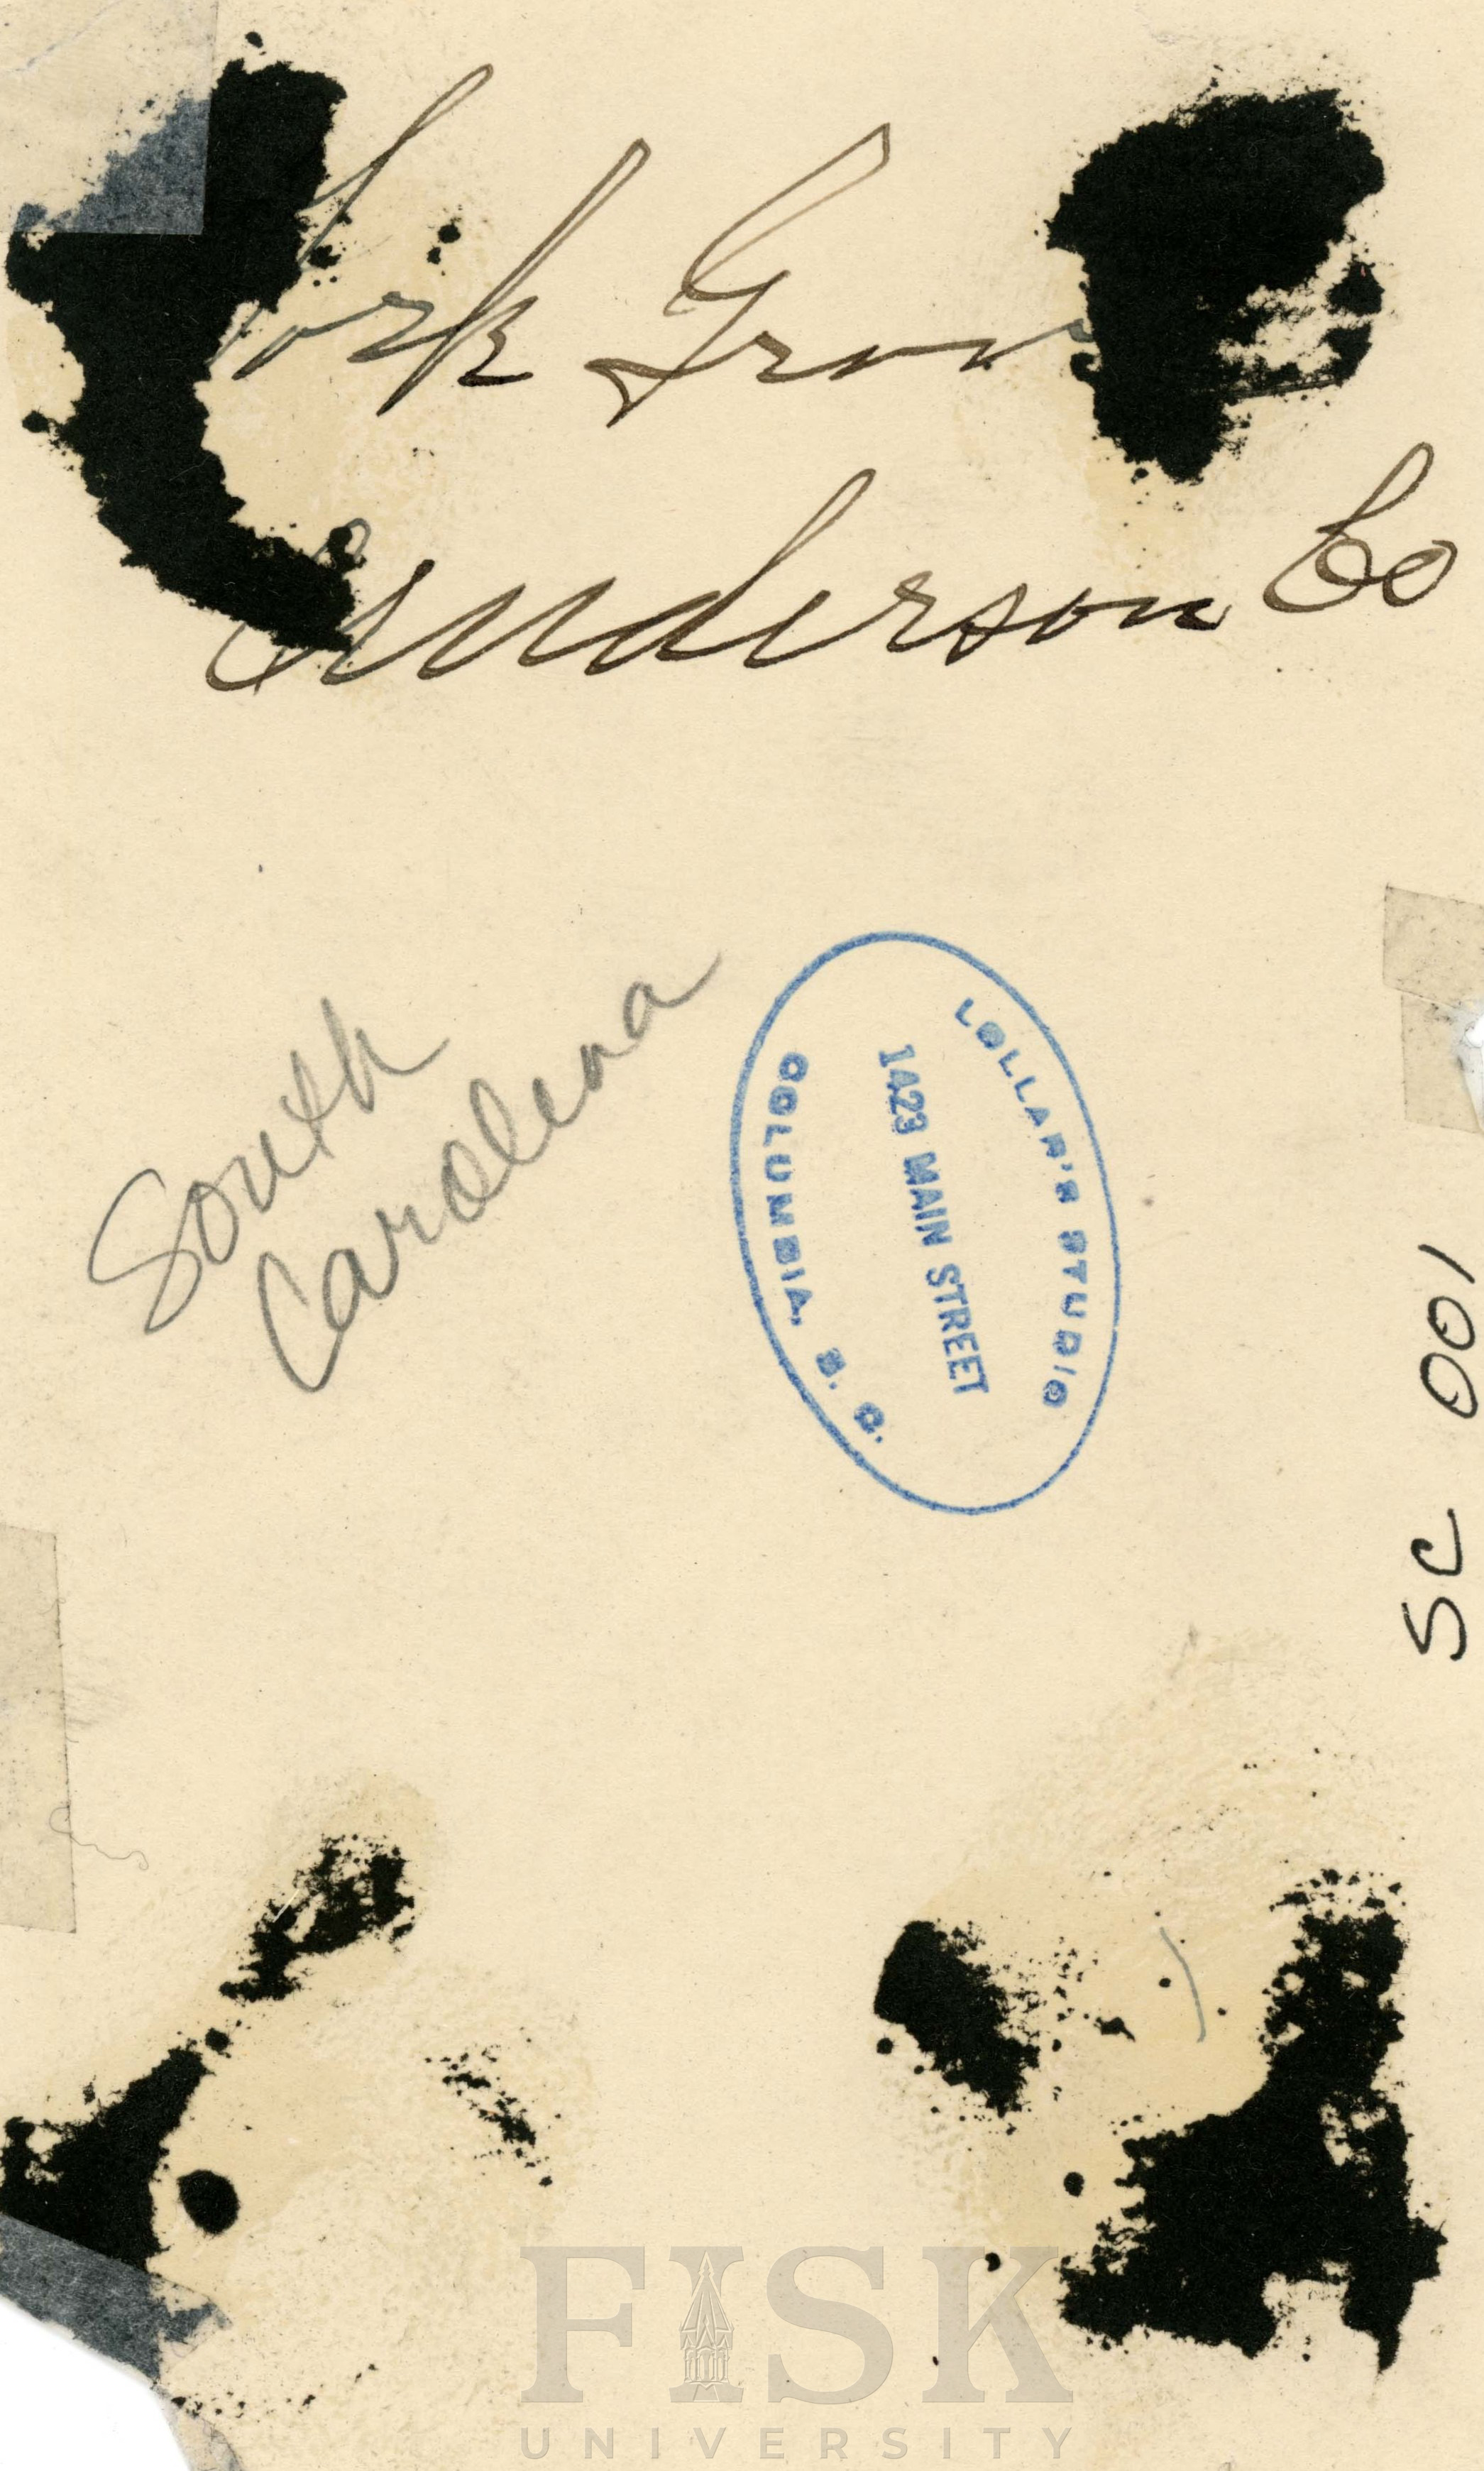 York Grov
Anderson Co
South
Carolina
LOLLAR'S STUDIO
1423 MAIN STREET
COLUMBIA, S. C.
SC 001
FISK
UNIVERSITY